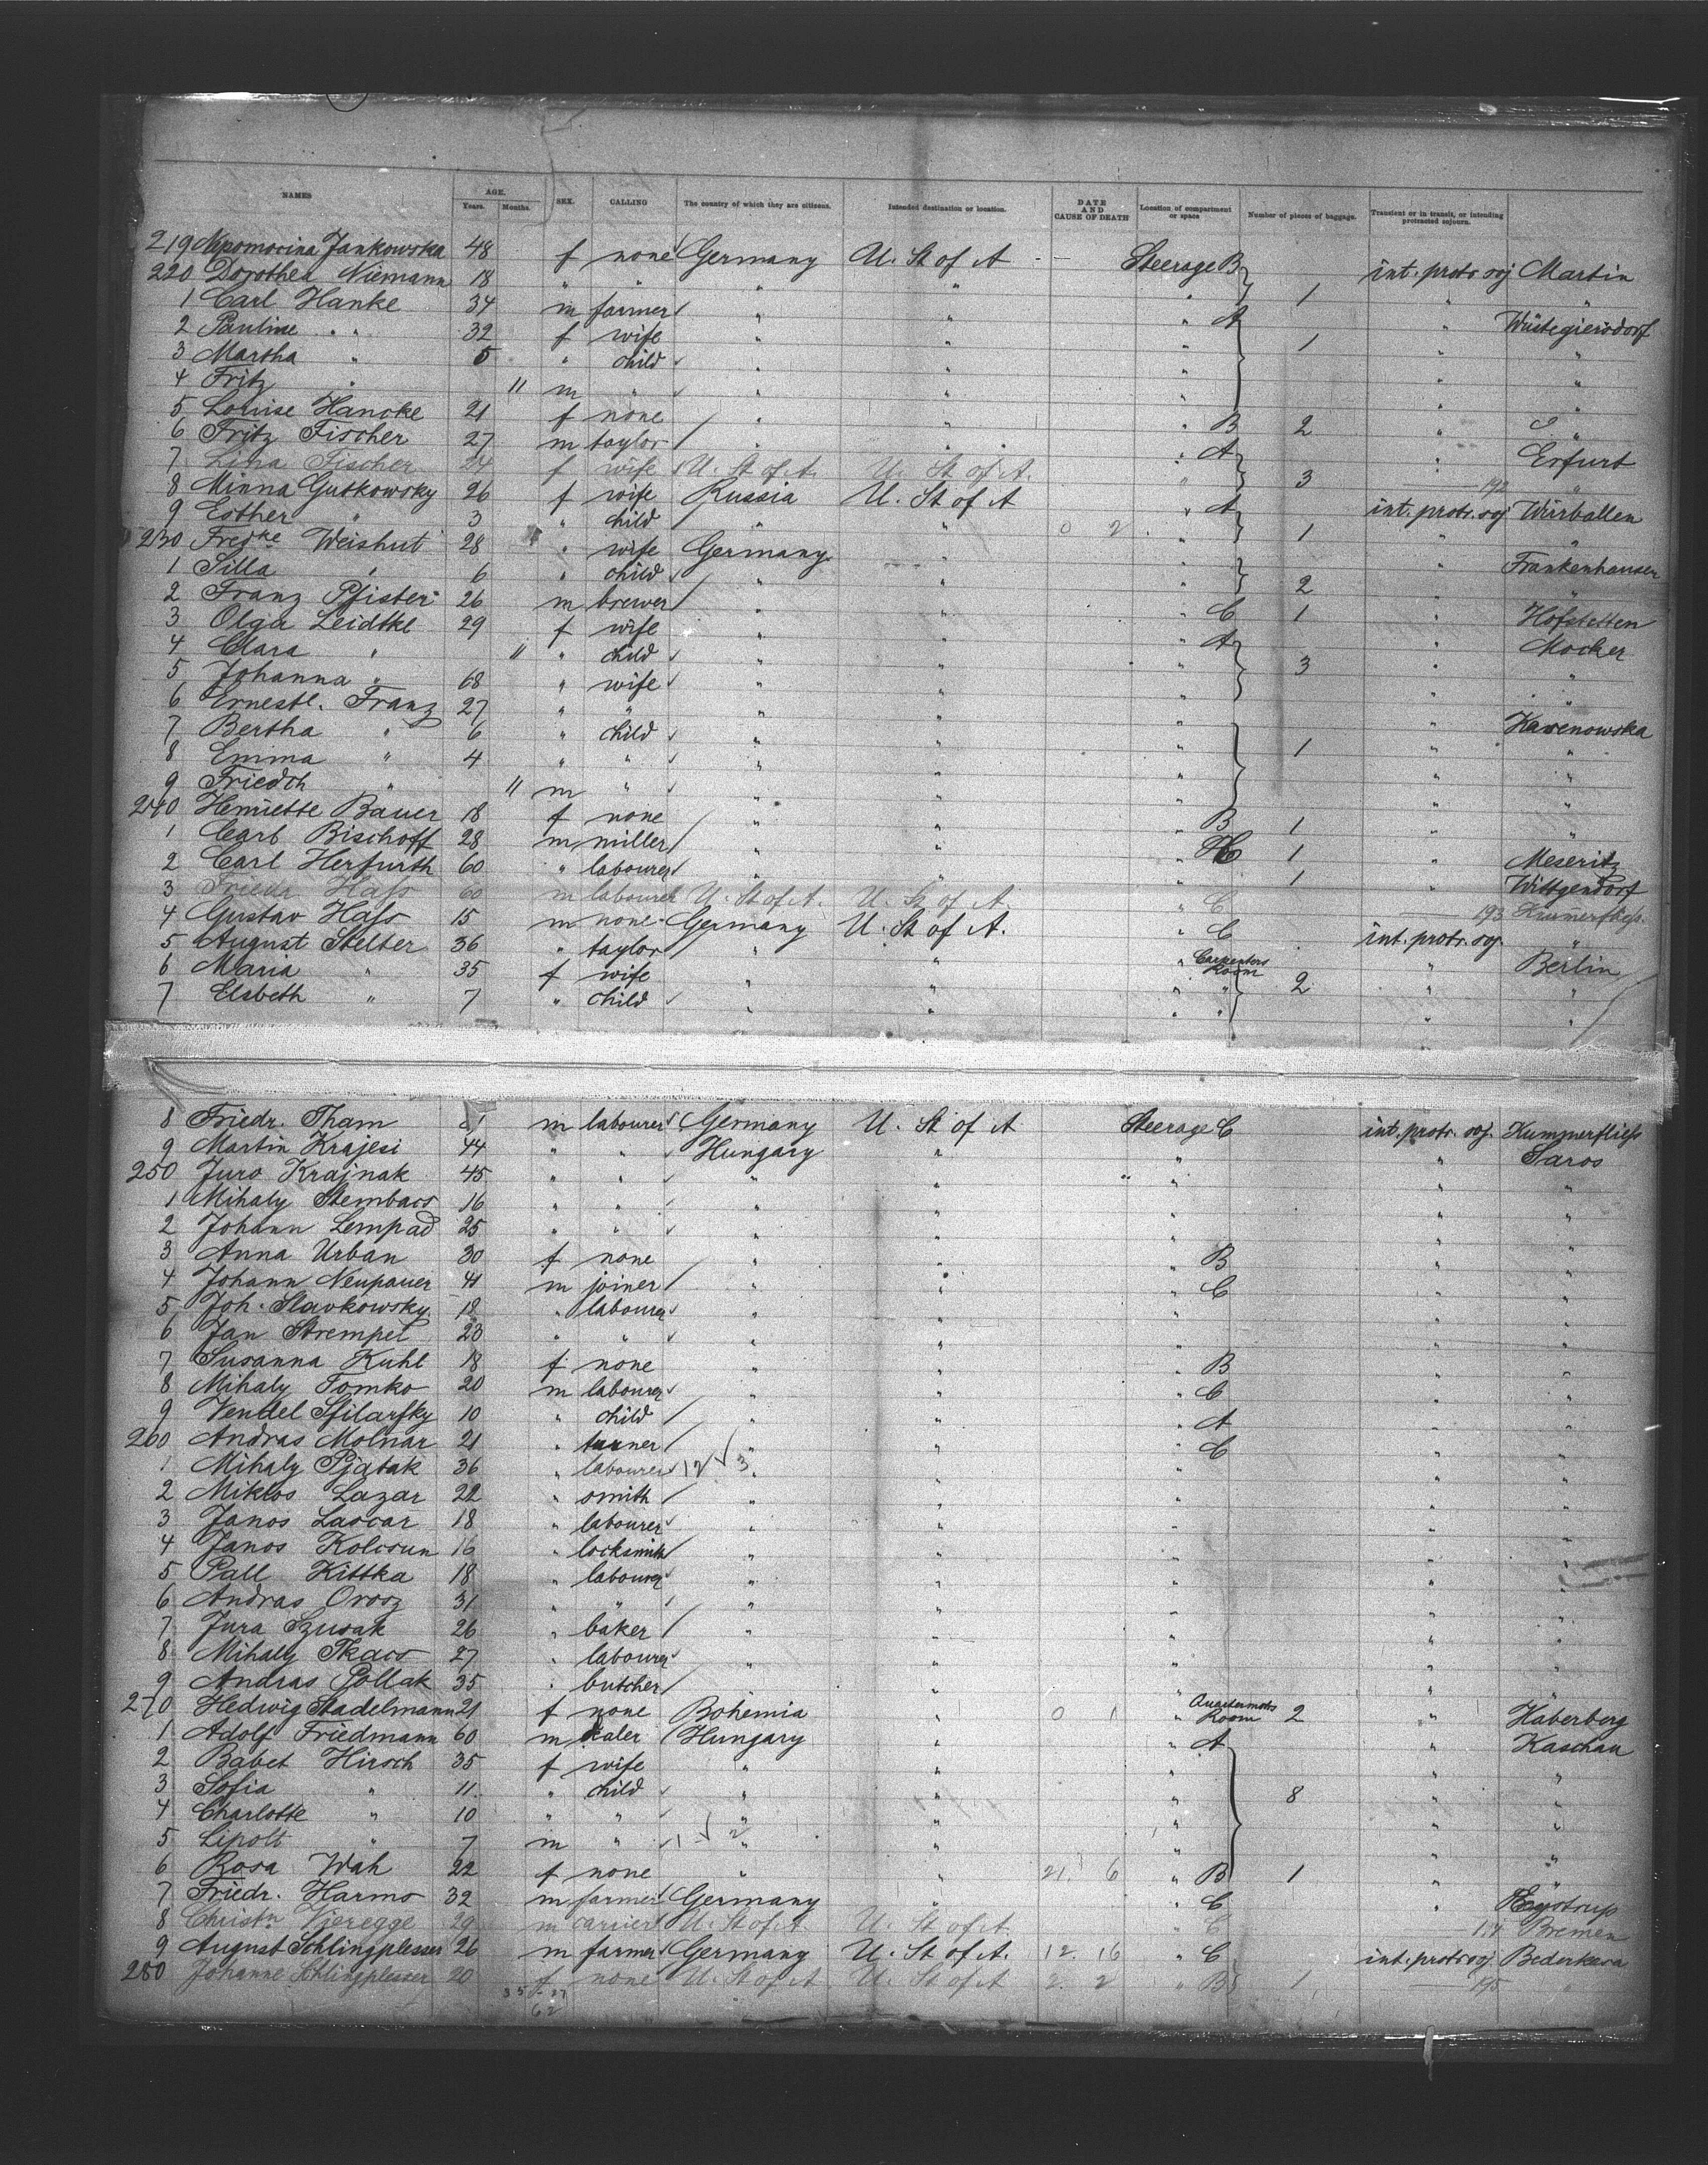 NAMES AGE. Years. Months. SEX. CALLING The country of which they are citizens. Intended destination or location. DATE AND CAUSE OF DEATH Location of compartment or space Number of pieces of baggage. Transient or in transit, or intending protracted sojourn.
219 Nepomocina Jankowska 48 f none Germany U. St of A - - Steerage B int. protr. soj Martin
220 Dorothea Niemann 18 " " " " " 1 " "
1 Carl Hanke 34 m farmer " " " A " Wüstegiersdorf
2 Pauline " 32 f wife " " " 1 " "
3 Martha " 5 " child " " " " "
4 Fritz " 11 m " " " " " "
5 Louise Hancke 21 f none " " " B 2 " "
6 Fritz Fischer 27 m taylor " " " A " Erfurt
7 Lina Fischer 24 f wife U. St of A. U. St of A. " 3 192 "
8 Minna Gutkowsky 26 f wife Russia U. St of A " A int. protr. soj Wirballen
9 Esther " 3 " child " " 0 2 " 1 " "
230 Fredke Weishut 28 " wife Germany " " " Frankenhausen
1 Silla " 6 " child " " " 2 " "
2 Franz Pfister 26 m brewer " " " C 1 " Hofstetten
3 Olga Leidtke 29 f wife " " " A " Mocker
4 Clara " 11 " child " " " 3 " "
5 Johanna " 68 " wife " " " " "
6 Ernestl. Franz 27 " " " " " " Kawenowska
7 Bertha " 6 " child " " " 1 " "
8 Emma " 4 " " " " " " "
9 Friedch " 11 m " " " " " "
240 Henriette Bauer 18 f none " " " B 1 " "
1 Carl Bischoff 28 m miller " " " C 1 " Meseritz
2 Carl Herfurth 60 " labourer " " " 1 " Wittgendorf
3 Friedr. Hass 60 m labourer U. St of A. U. St of A. " C 193
4 Gustav Hass 15 m none Germany U. St of A. " C int. protr. soj. "
5 August Stelter 36 " taylor " " " Carpenters Room " Berlin
6 Maria " 35 f wife " " " " 2 " "
7 Elsbeth " 7 " child " " " " " "
8 Friedr. Tham m labourer Germany U. St of A Steerage C int. protr. soj. Kummerfliess
9 Martin Krajesi 44 " " Hungary " " " Saros
250 Juro Krajnak 45 " " " " " " "
1 Mihaly Stembacs 16 " " " " " " "
2 Johann Lempad 25 " " " " " " "
3 Anna Urban 30 f none " " " B " "
4 Johann Neupauer 41 m joiner " " " C " "
5 Joh. Slavkowsky 18 " labourer " " " " "
6 Jan Strempel 23 " " " " " " "
7 Susanna Kuhl 18 f none " " " B " "
8 Mihaly Tomko 20 m labourer " " " C " "
9 Vendel Sfilarfky 10 " child " " " A " "
260 Andras Molnar 21 " turner " " " C " "
1 Mihaly Pjatak 36 " labourer 12 3 " " " " "
2 Miklos Lazar 22 " smith " " " " "
3 Janos Lascar 18 " labourer " " " " "
4 Janos Kolcsun 16 " locksmith " " " " "
5 Pall Kittka 18 " labourer " " " " "
6 Andras Orosz 31 " " " " " " "
7 Jura Szusak 26 " baker " " " " "
8 Mihaly Tkacs 27 " labourer " " " " "
9 Andras Pollak 35 " butcher " " " " "
270 Hedwig Stadelmann 21 f none Bohemia " 0 1 " Quartermstrs Room 2 " Haberberg
1 Adolf Friedmann 60 m Hungary " " A " Kaschau
2 Babet Hirsch 35 f wife " " " " "
3 Sofia " 11 " child " " " 8 " "
4 Charlotte " 10 " " " " " " "
5 Lipolt " 7 m " 1 2 " " " " "
6 Rosa Wah 22 f none " " 21. 6 " B 1 " "
7 Friedr. Harms 32 m farmer Germany " " C " Eystrup
8 Christn Vieregge 29 m carrier U. St of A U. St of A " C Bremen
9 August Schlingplesser 26 m farmer Germany U. St of A. 12. 16 " C int. protr soj Bederkesa
280 Johanne Schlingplesser 20 f none U. St of A U. St of A 2. 2 " B 1 195 "
62